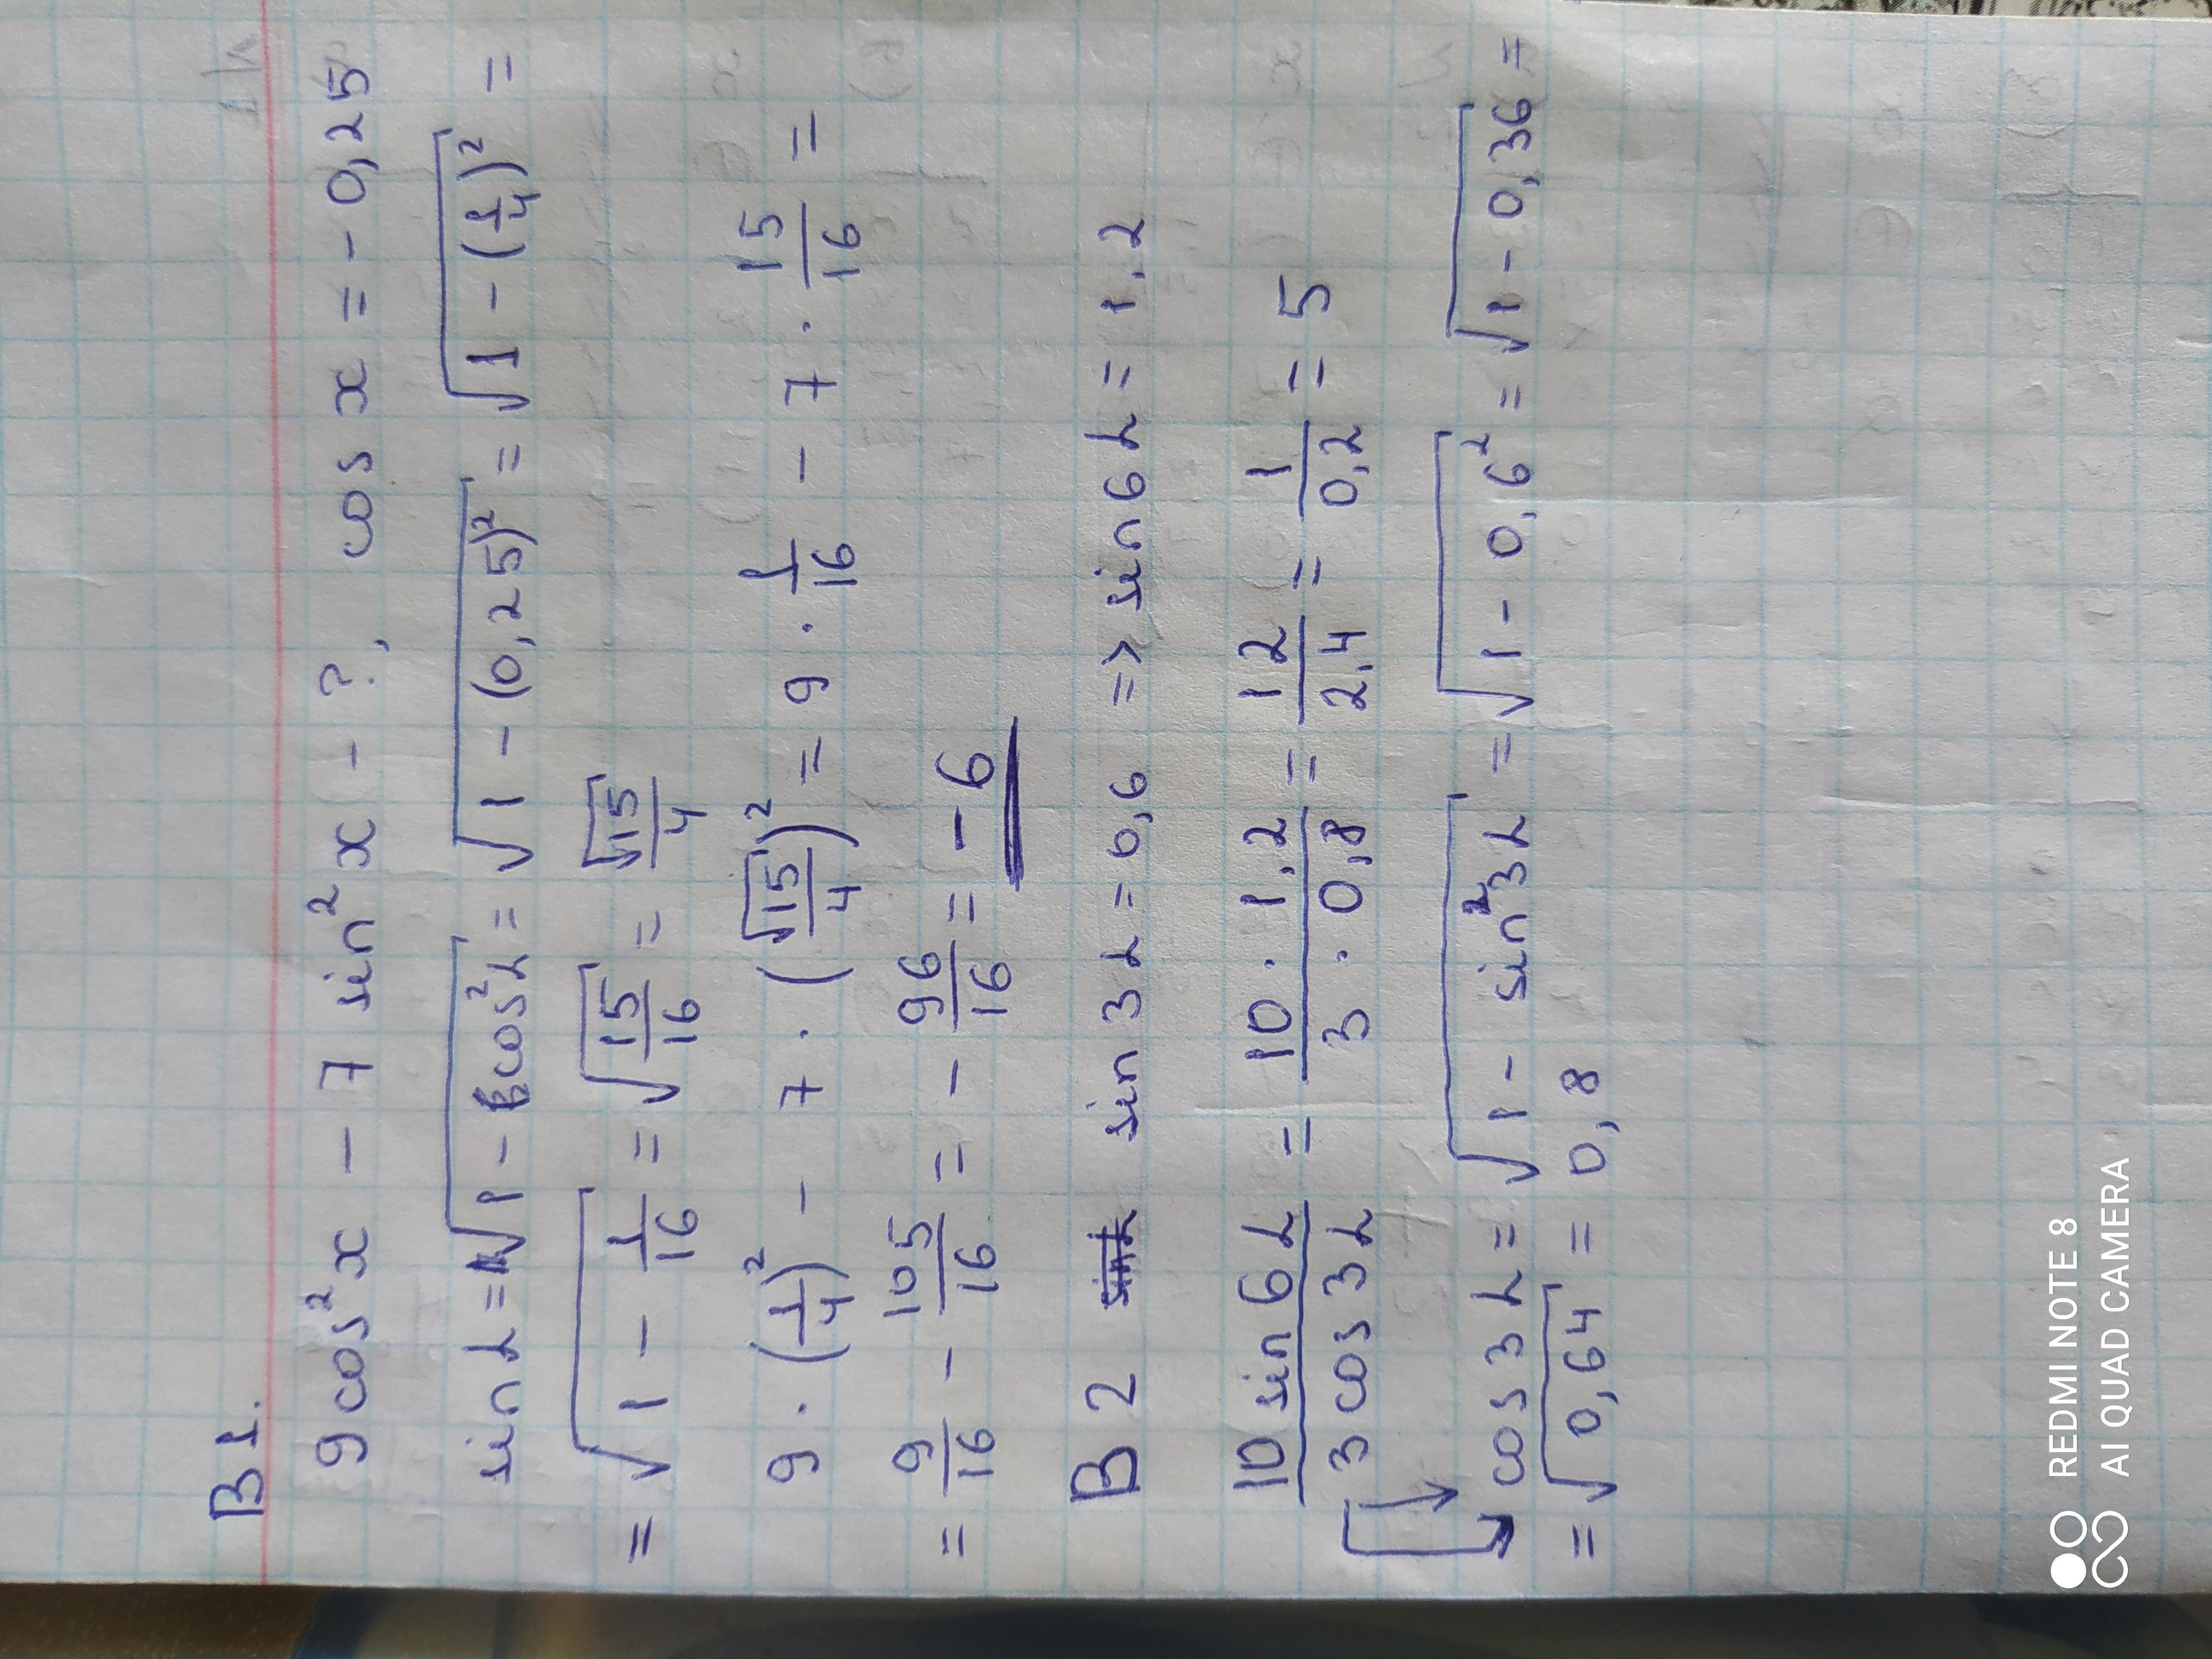 B 1.
9 cos²x - 7 sin²x - ?, cos x = - 0,25
sin α = √(1 - cos²α) = √(1 - (0,25)²) = √(1 - (1/4)²) =
= √(1 - 1/16) = √(15/16) = √15/4
9 · (1/4)² - 7 · (√15/4)² = 9 · 1/16 - 7 · 15/16 =
= 9/16 - 105/16 = - 96/16 = - 6
B 2 sin 3α = 0,6 => sin 6α = 1,2
10 sin 6α / 3 cos 3α = 10 · 1,2 / 3 · 0,8 = 12/2,4 = 1/0,2 = 5
cos 3α = √(1 - sin²3α) = √(1 - 0,6²) = √(1 - 0,36) =
= √0,64 = 0,8
REDMI NOTE 8
AI QUAD CAMERA